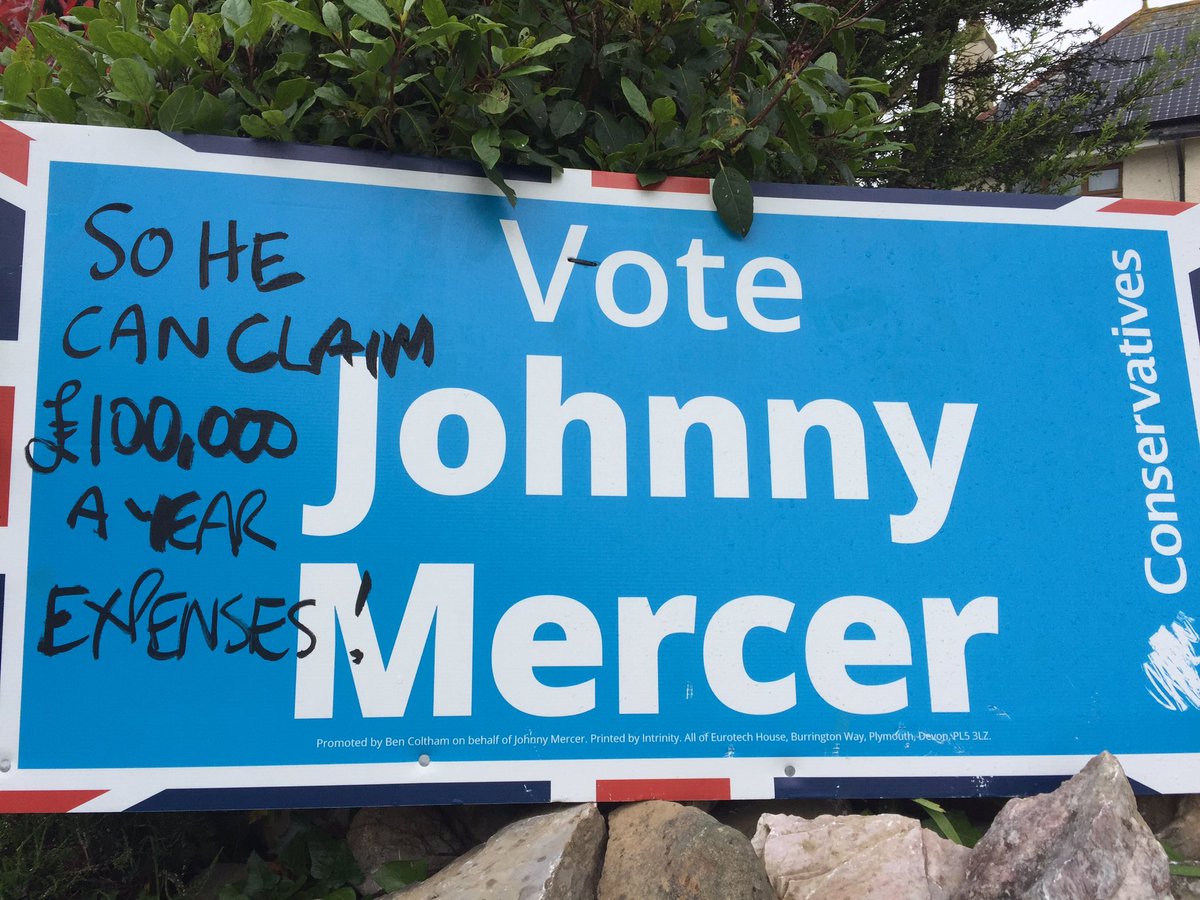 SO HE
CAN CLAIM
£100,000
A YEAR
EXPENSES!
Vote
Johnny
Mercer
Conservatives
Promoted by Ben Coltham on behalf of Johnny Mercer. Printed by Intrinity. All of Eurotech House, Burrington Way, Plymouth, Devon, PL5 3LZ.